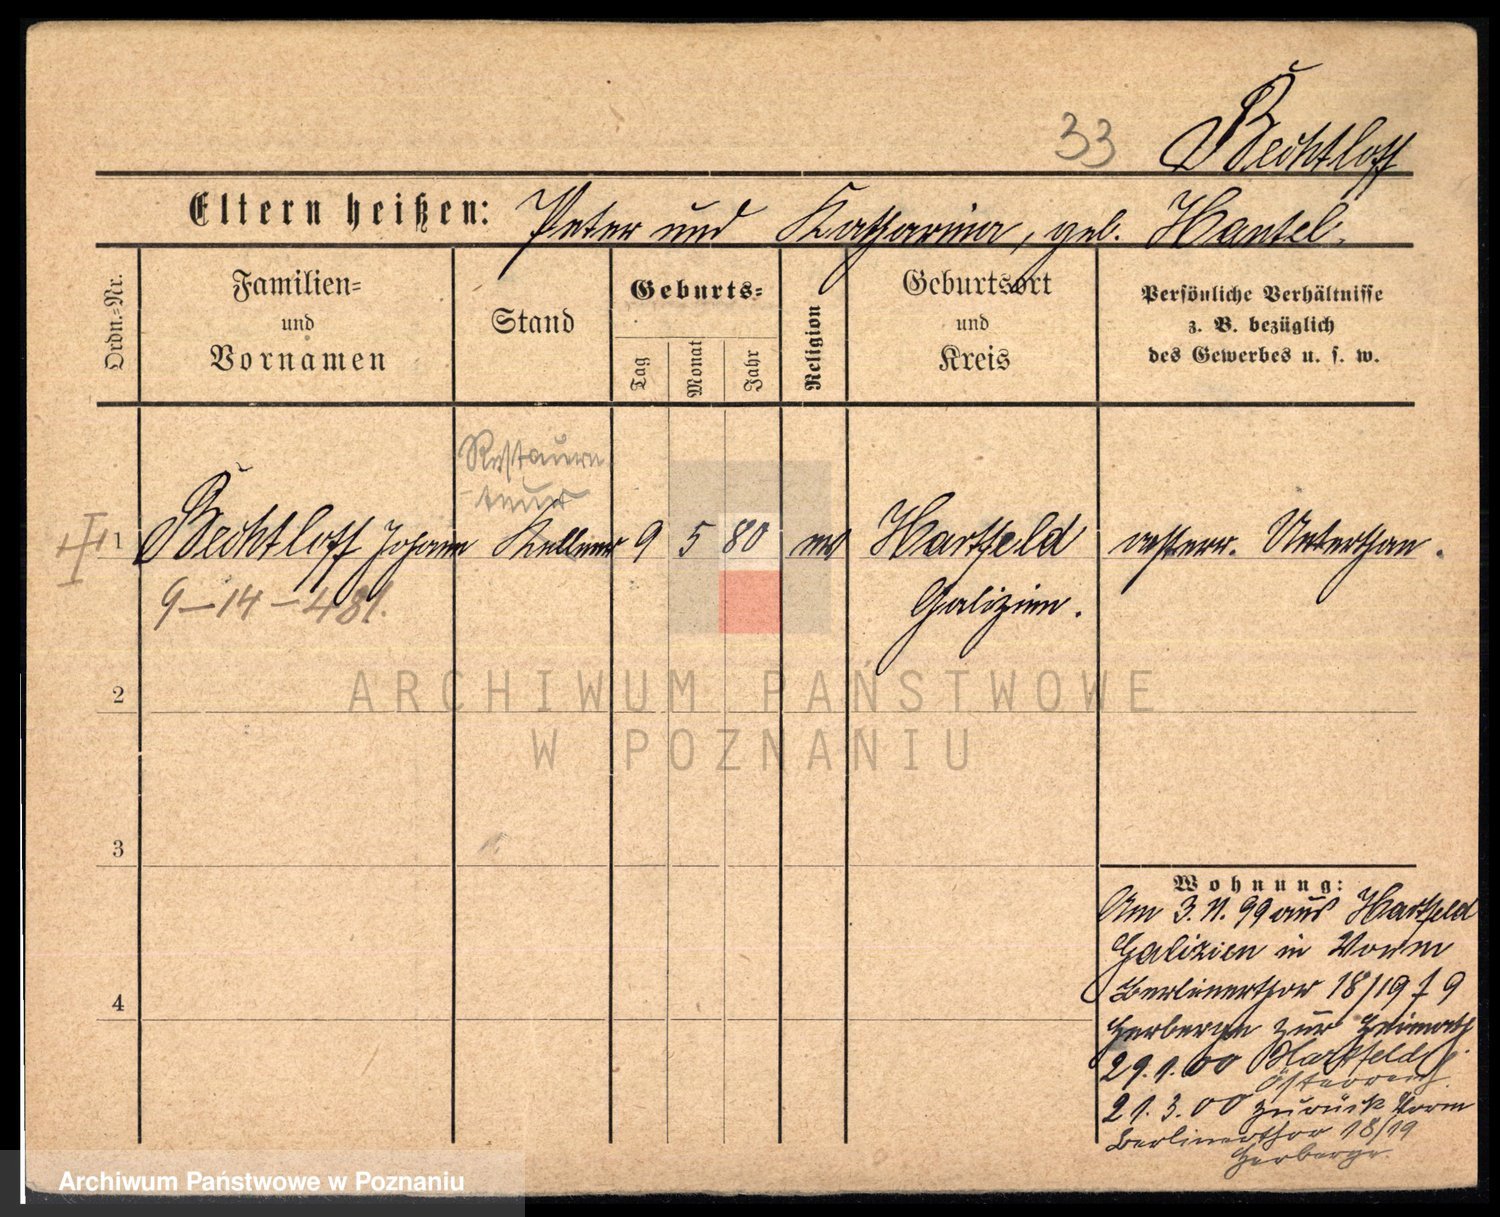 33 Bechtloff
Eltern heißen: Peter und Katharina, geb. Hantel.
Ordn.-Nr.
Familien-
und
Vornamen
Stand
Geburts-
Tag
Monat
Jahr
Religion
Geburtsort
und
Kreis
Persönliche Verhältnisse
z. B. bezüglich
des Gewerbes u. s. w.
Restaura-
teur
1 Bechtloff Johann Kellner 9 5 80 ev Hartfeld oesterr. Unterthan.
9-14-481. Galizien.
2
3
4
Wohnung:
Am 3.11.99 aus Hartfeld
Galizien in Worm
Berlinerthor 18/19 f 9
Herberge zur Heimath
29.1.00 Hartfeld
Österreich.
21.3.00 zurück Worm
Berlinerthor 18/19
Herberge.
ARCHIWUM PAŃSTWOWE
W POZNANIU
Archiwum Państwowe w Poznaniu